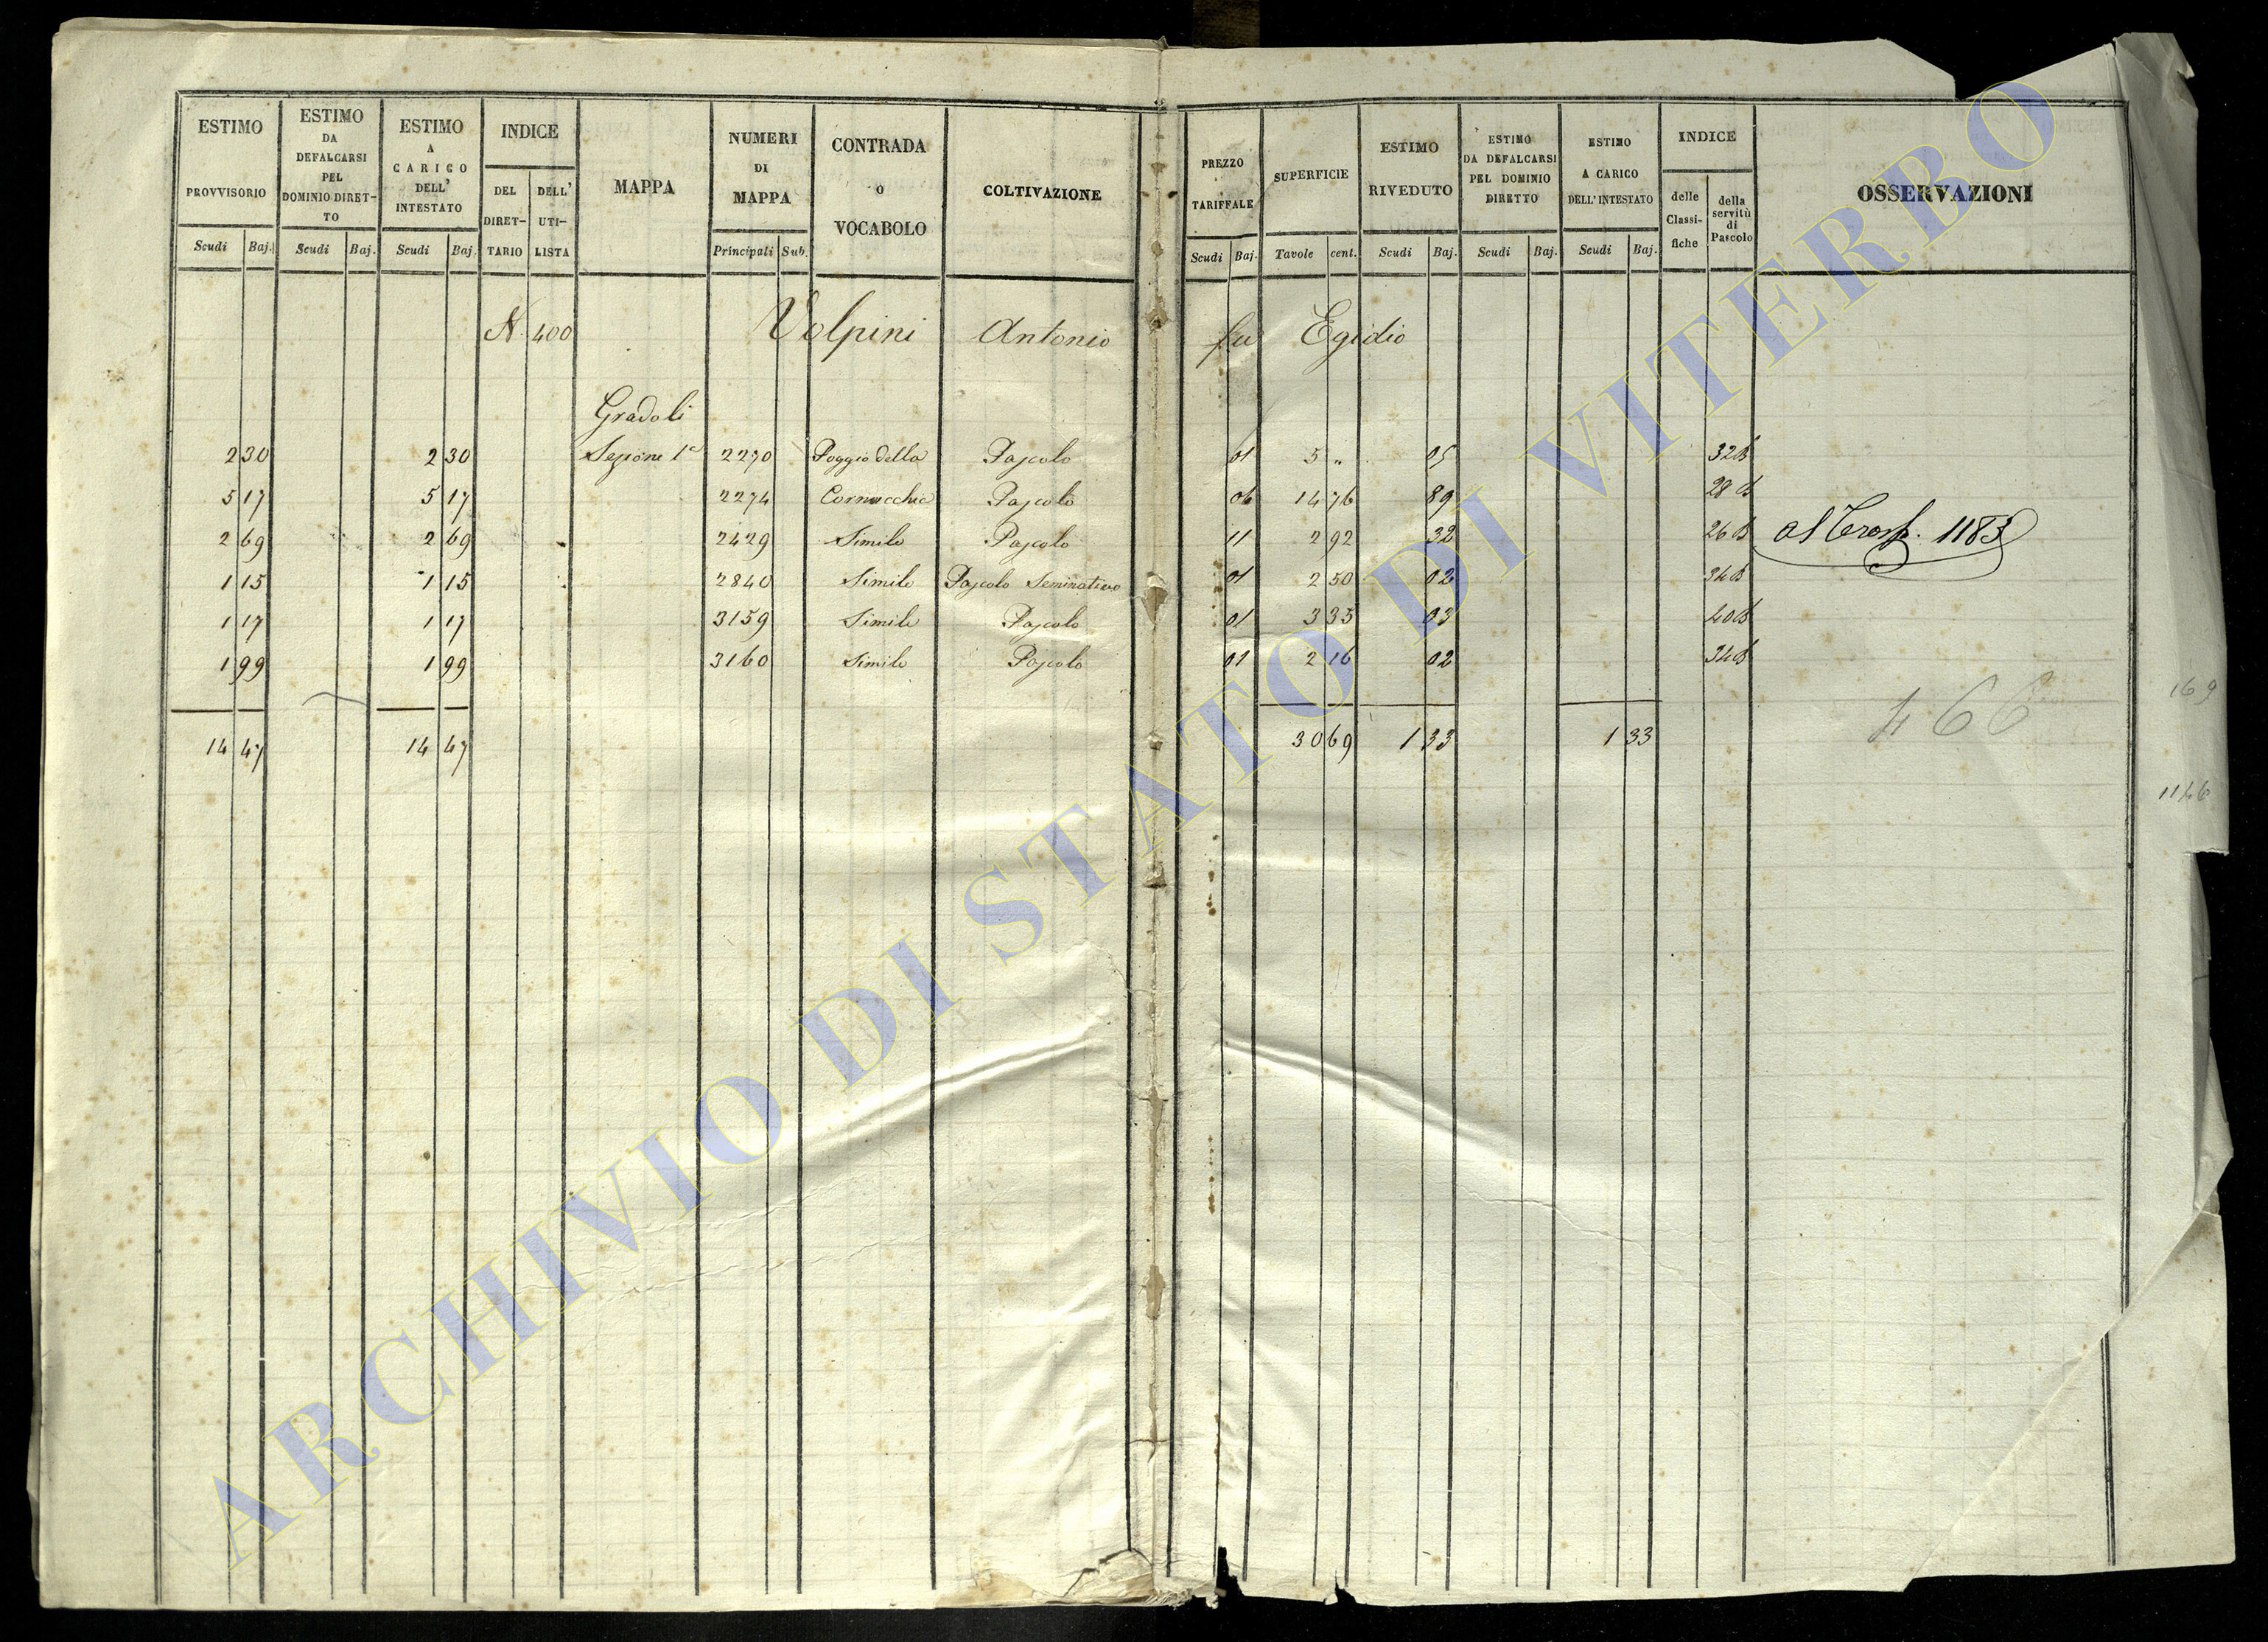 ESTIMO PROVVISORIO Scudi Baj.
ESTIMO DA DEFALCARSI PEL DOMINIO DIRET-TO Scudi Baj.
ESTIMO A CARICO DELL' INTESTATO Scudi Baj.
INDICE DEL DIRET-TARIO DELL' UTI-LISTA
MAPPA
NUMERI DI MAPPA Principali Sub.
CONTRADA O VOCABOLO
COLTIVAZIONE
PREZZO TARIFFALE Scudi Baj.
SUPERFICIE Tavole cent.
ESTIMO RIVEDUTO Scudi Baj.
ESTIMO DA DEFALCARSI PEL DOMINIO DIRETTO Scudi Baj.
ESTIMO A CARICO DELL'INTESTATO Scudi Baj.
INDICE delle Classi-fiche della servitù di Pascolo
OSSERVAZIONI
N. 400 Volpini Antonio fu Egidio
Gradoli
2 30 2 30 Sezione 1a 2270 Poggio della Pascolo 01 5 " 05 32 B
5 17 5 17 2274 Cornacchia Pascolo 06 14 76 89 28 B
2 69 2 69 2429 Simile Pascolo 11 2 92 32 26 B
al Trasp. 1183
1 15 1 15 2840 Simile Pascolo Seminativo 01 2 50 02 34 B
1 17 1 17 3159 Simile Pascolo 01 3 35 03 40 B
1 99 1 99 3160 Simile Pascolo 01 2 16 02 34 B
14 47 14 47 30 69 1 33 1 33
466
169
1146
ARCHIVIO DI STATO DI VITERBO